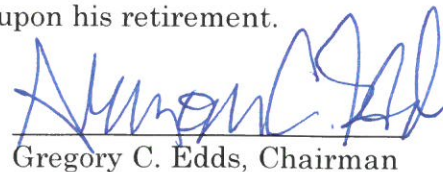 upon his retirement.
Gregory C. Edds, Chairman